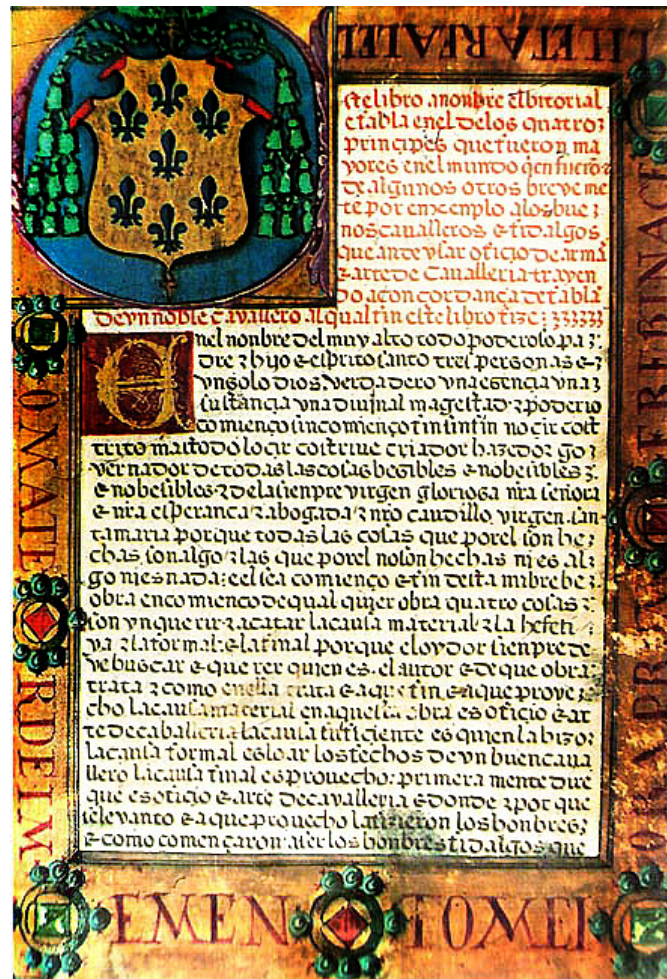 ste libro a nonbre el bitorial
e tabla en el de los quatro
principes que fueron ma
yores en el mundo
de algunos otros breve me
te por enxenplo a los bue
nos cavalleros & fidalgos
que an de usar oficio de arma
& arte de Cavalleria trayen
do a concordança de tabla
de un noble cavallero al qual fin este libro fize
E nel nonbre del muy alto todo poderoso pa
dre & hijo & esprito santo tres personas &
un solo dios verdadero una esençia una
sustançia una diuinal magestad & poderio
comienço sin comienço fin sin fin no cir cost
trito mas todo lo cir costrive criador hazedor go
vernador de todas las cosas besibles & no besibles
& no besibles & de la sienpre virgen gloriosa nra señora
& nra esperança & abogada & nro caudillo virgen san
ta maria por que todas las cosas que por el son he
chas son algo & las que por el no son hechas ni es al
go ni es nada: e el sea comienço & fin desta mi bre be
obra en comienco de qual quier obra quatro cosas
son yn querir & acatar la causa material & la hefeti
va & la formal & la final porque el oydor sienpre de
ve buscar & que rer quien es el autor & de que obra
trata & como en ella trata & a que fin & a que prove
cho la causa material en aquesta obra es ofiçio & ar
te de caballeria la causa eficiente es quien la hizo
la causa formal es loar los fechos de un buen caua
llero la causa final es prouecho: primera mente dire
que es ofiçio & arte de cavalleria & donde & por que
se levanto & a que prouecho la fizieron los honbres
& como començaron aver los honbres fidalgos que
OMATE
RDEIM
EMEN
TOMEI